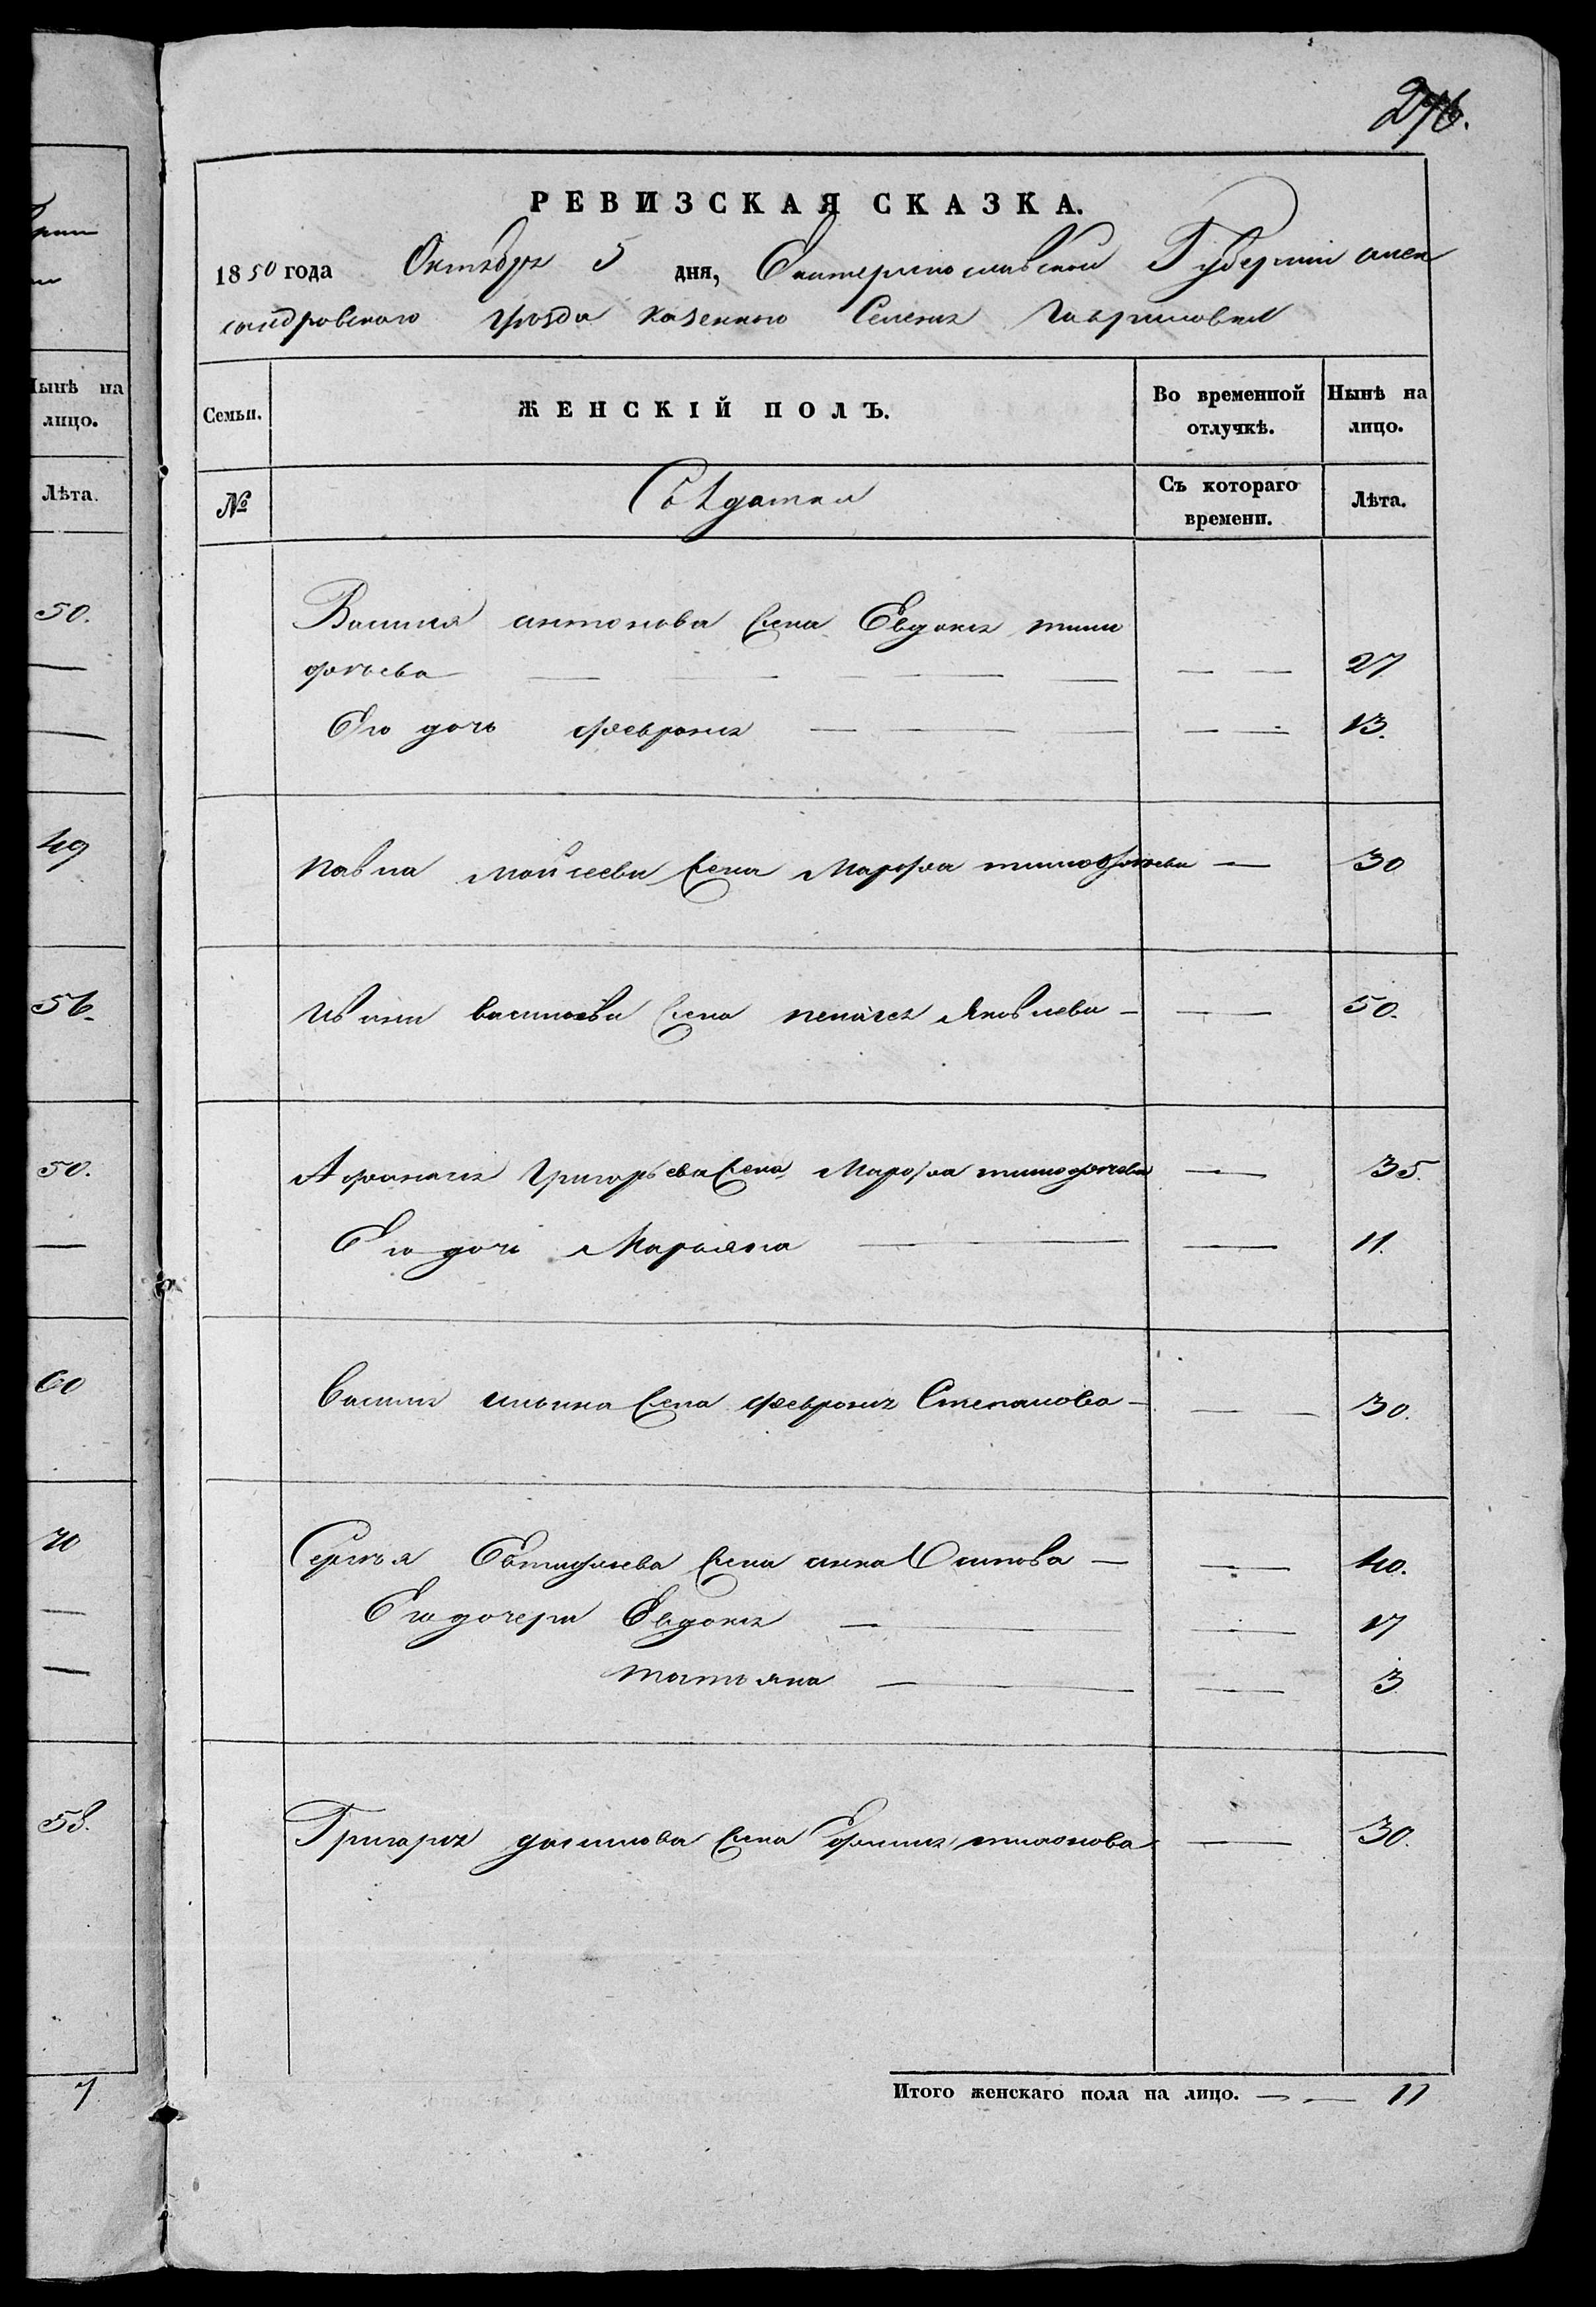 276.
РЕВИЗСКАЯ СКАЗКА.
1850 года Октября 5 дня, Екатеринославской Губерніи алек
сандровского уѣзда казенного Селенія Гавриловки
Семьи.
ЖЕНСКІЙ ПОЛЪ.
Во временной отлучкѣ.
Нынѣ на лицо.
№
Солдатки
Съ котораго времени.
Лѣта.
Василія антонова жена Евдокія тимо
фѣева — — 27
Его дочь февронія — — 13.
павла мойсеева жена Марфа тимофѣева — 30
ивана васильева жена пелагея Яковлева — — 50.
Афанасія Григорьева жена Марфа тимофѣева — 35.
Его дочь Марьяна — — 11.
василія ильина жена феврония Степанова — — 30.
Сергѣя жена анна Осипова — — 40.
Его дочери Евдокія — — 17
татьяна — — 3
Григорія данилова жена — 30.
Итого женскаго пола на лицо. — — 11
Нынѣ на
лицо.
Лѣта.
50.
—
—
49
56.
50.
—
60
70
—
—
7